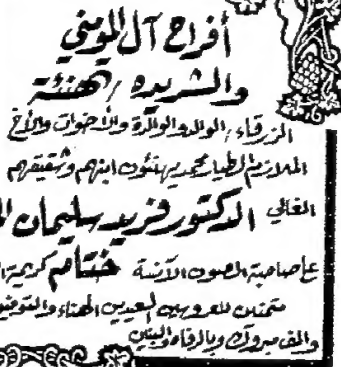 أفراح آل المومني
والشريده / تهنئة
الزرقاء / الوالد والوالدة والأخوات والأخ
الملازم الطيار محمد يهنئون ابنهم وشقيقهم
الغالي الدكتور فريد سليمان
على صاحبة الصون الآنسة ختام كريمة
متمنين للعروسين السعيدين الهناء والتوفيق
والف مبروك وبالرفاه والبنين